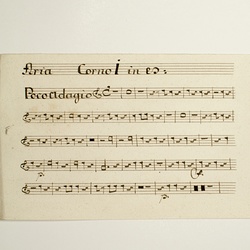 Aria Corno I in es:
Poco adagio